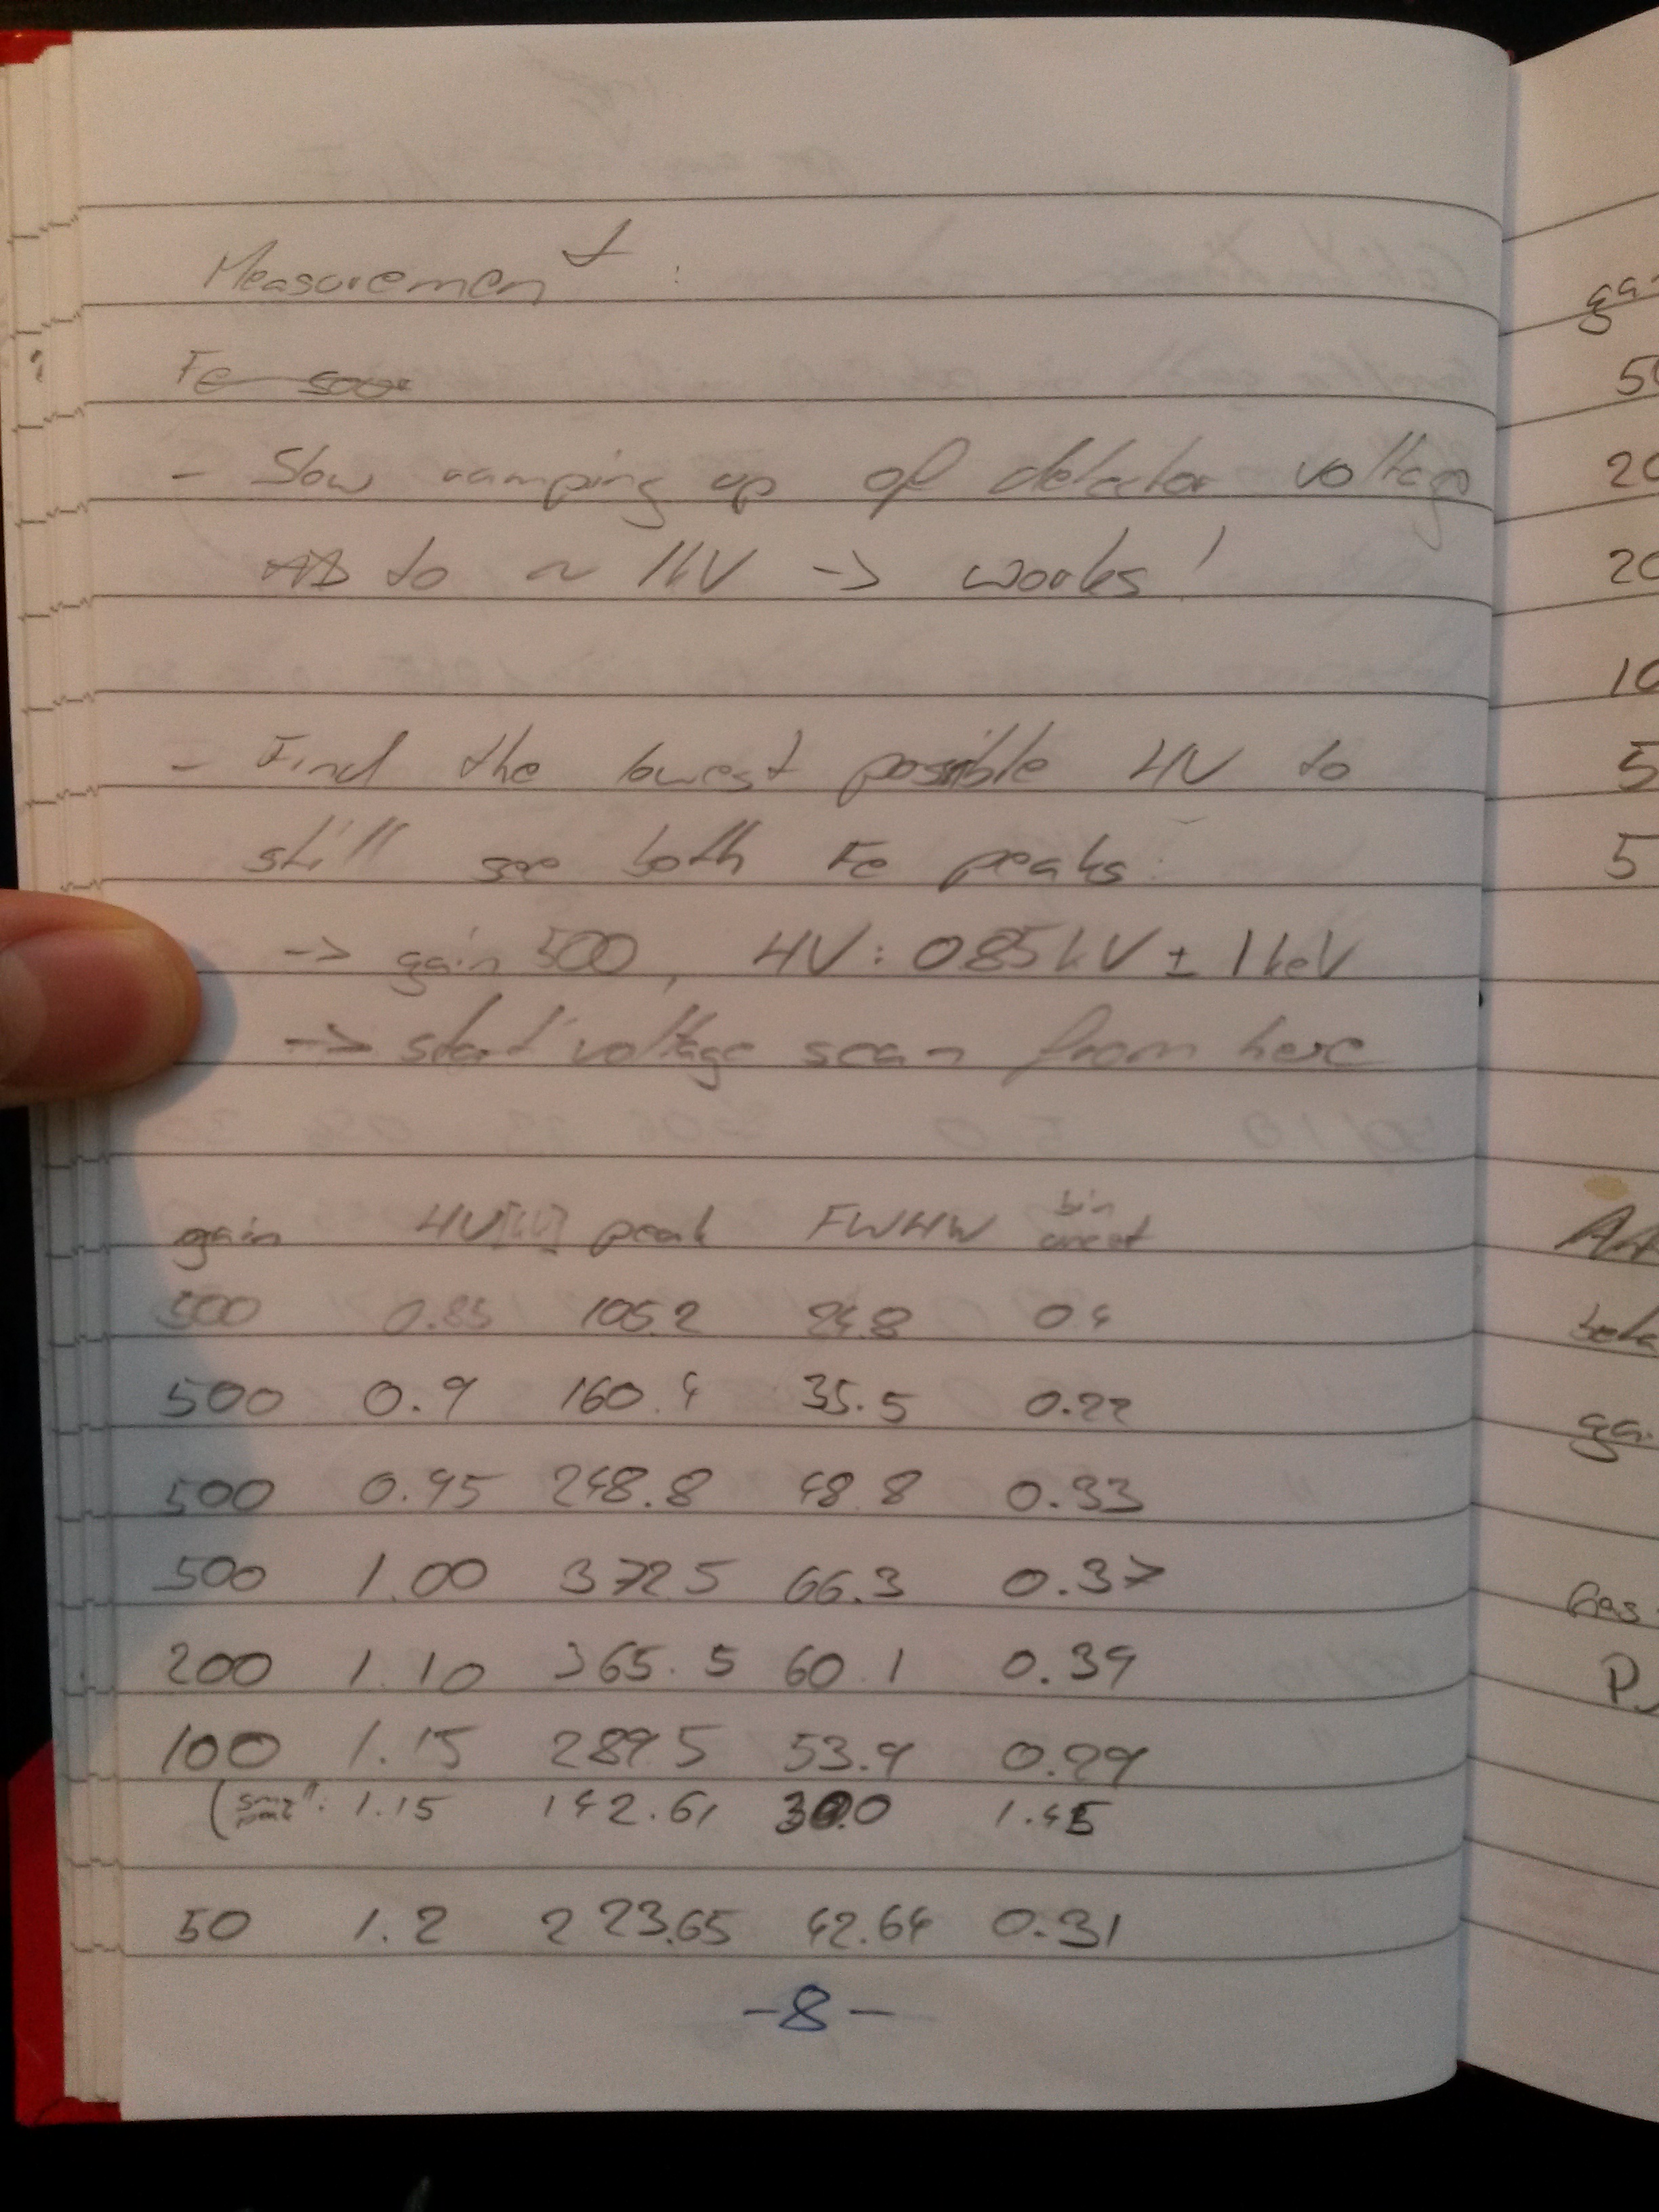 Measurement :
Fe sour
- Slow ramping up of detector voltage
to ~ 1kV -> works!
- Find the lowest possible HV to
still see both Fe peaks:
-> gain 500, HV: 0.85kV ± 1keV
-> start voltage scan from here
gain HV[kV] peak FWHW bin
500 0.85 105.2 24.8 0.4
500 0.9 160.4 35.5 0.22
500 0.95 248.8 48.8 0.33
500 1.00 372.5 66.3 0.37
200 1.10 365.5 60.1 0.39
100 1.15 289.5 53.9 0.29
1.15 142.61 1.45
50 1.2 223.65 42.64 0.31
-8-
ga
50
20
20
10
5
5
beta
ga
Gas
P.